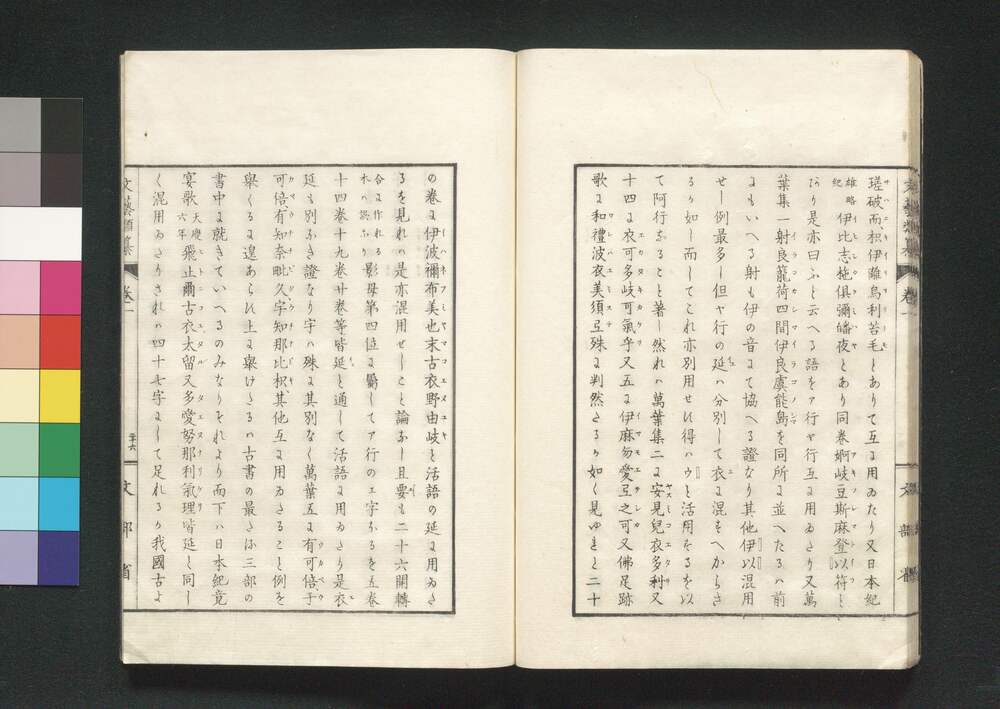 瑳破而枳伊離鳥利苦毛とありて互に用ゐたり又日本紀
雄略紀伊比志拖倶彌皤夜とあり同卷婀岐豆斯麻登以符と
あり是亦曰ふと云へる語をア行ヤ行互に用ゐたり又萬
葉集一射良籠荷四間伊良虞能島を同所に並へたるハ前
にもいへる射も伊の音にて協へる證なり其他伊以混用
せし例最多し但ヤ行の延ハ分別して衣に混をへからさ
るか如し而してこれ亦別用せは得ハウと活用するを以
て阿行なること著し然れハ萬葉集二に安見兒衣多利又
十四に衣可多岐可氣乎又五に伊麻勿愛弖之可又佛足跡
歌に和禮波衣美須弖殊に判然たるか如く見ゆまと二十
の卷に伊波禰布美也末古衣野由岐と活語の延に用ゐた
るを見れハ是亦混用せしこと論なし且要も二十六開轉
合に作れる本ハ誤なり影母第四位に屬してア行のエ字なるを五卷
十四卷十九卷廿卷等皆延と通して活語に用ゐたり是衣
延も別なき證なり宇ハ殊に其別なく萬葉五に有可倍于
可倍有知奈毗久宇知那比枳其他互に用ゐたること例を
舉くるに遑あらは上に舉けたるハ古書の最たる三部の
書中に就きていへるのみなりそれより而下ハ日本紀竟
宴歌天慶六年飛止爾古衣太留又多愛努那利氣理皆延と同し
く混用ゐたりされハ四十七字にして足れるか我國古よ
文藝類纂
卷一
三十六
文部省